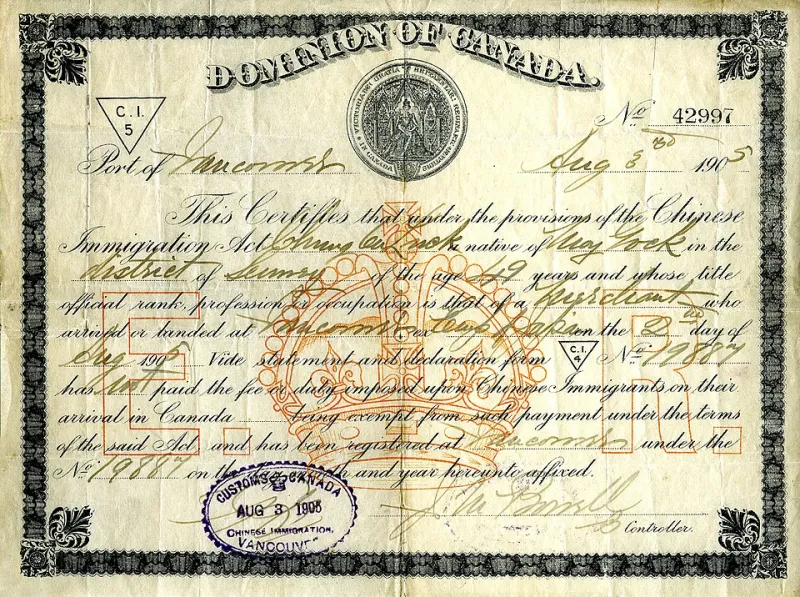 DOMINION OF CANADA.
C. I.
5
No 42997
Port of Vancouver Aug 3rd 1905
This Certifies that under the provisions of the Chinese
Immigration Act Chung a native of in the
district of Sunney of the age 49 years and whose title
official rank, profession or occupation is that of a Merchant who
arrived or landed at Vancouver ex on the 2nd day of
Aug 1905 Vide statement and declaration form C.I. 4 No. 19887
has not paid the fee or duty imposed upon Chinese Immigrants on their
arrival in Canada being exempt from such payment under the terms
of the said Act, and has been registered at Vancouver under the
No 19887 on the and year hereunto affixed.
E. R.
CUSTOMS CANADA
AUG 3 1905
CHINESE IMMIGRATION.
VANCOUVER
Controller.